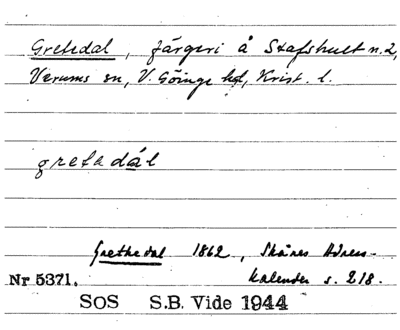 Grethedal, färgeri å Stafshult n. 2,
Verums sn, V. Göinge hd, Krist. l.
gretadál
Grethedal 1862, Skånes Adress-
Nr 5371. kalender s. 218.
SOS S.B. Vide 1944